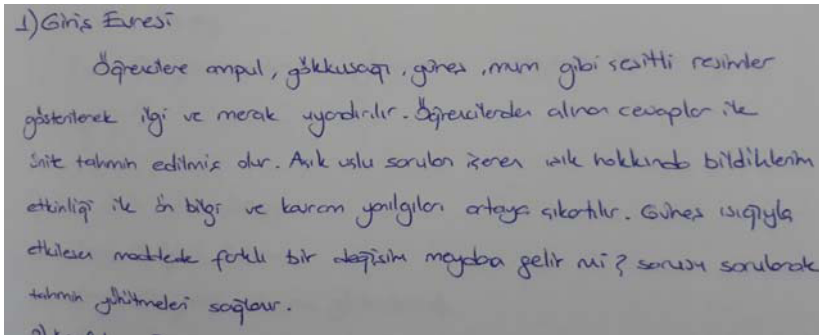 1) Giriş Evresi
Öğrencilere ampul, gökkuşağı, güneş, mum gibi çeşitli resimler
gösterilerek ilgi ve merak uyandırılır. Öğrencilerden alınan cevaplar ile
ünite tahmin edilmiş olur. Açık uçlu soruları içeren ışık hakkında bildiklerim
etkinliği ile ön bilgi ve kavram yanılgıları ortaya çıkartılır. Güneş ışığıyla
etkileşen maddede farklı bir değişim meydana gelir mi? sorusu sorularak
tahmin yürütmeleri sağlanır.